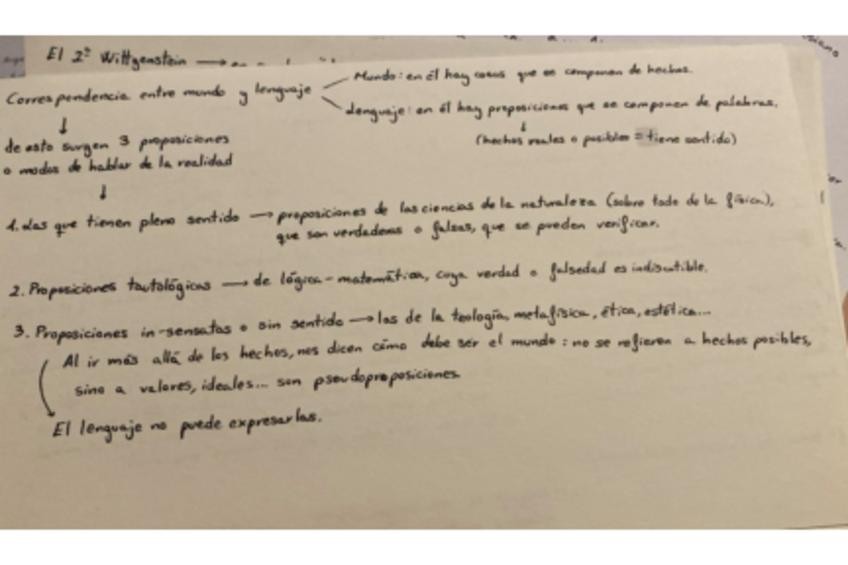 El 2º Wittgenstein →
Correspondencia entre mundo y lenguaje
Mundo: en él hay cosas que se componen de hechos.
Lenguaje: en él hay proposiciones que se componen de palabras.
↓
(hechos reales o posibles = tiene sentido)
↓
de esto surgen 3 proposiciones
o modos de hablar de la realidad
↓
1. Las que tienen pleno sentido → proposiciones de las ciencias de la naturaleza (sobre todo de la física),
que son verdaderas o falsas, que se pueden verificar.
2. Proposiciones tautológicas → de lógica-matemática, cuya verdad o falsedad es indiscutible.
3. Proposiciones in-sensatas o sin sentido → las de la teología, metafísica, ética, estética...
Al ir más allá de los hechos, nos dicen cómo debe ser el mundo: no se refieren a hechos posibles,
sino a valores, ideales... son pseudoproposiciones
El lenguaje no puede expresarlas.